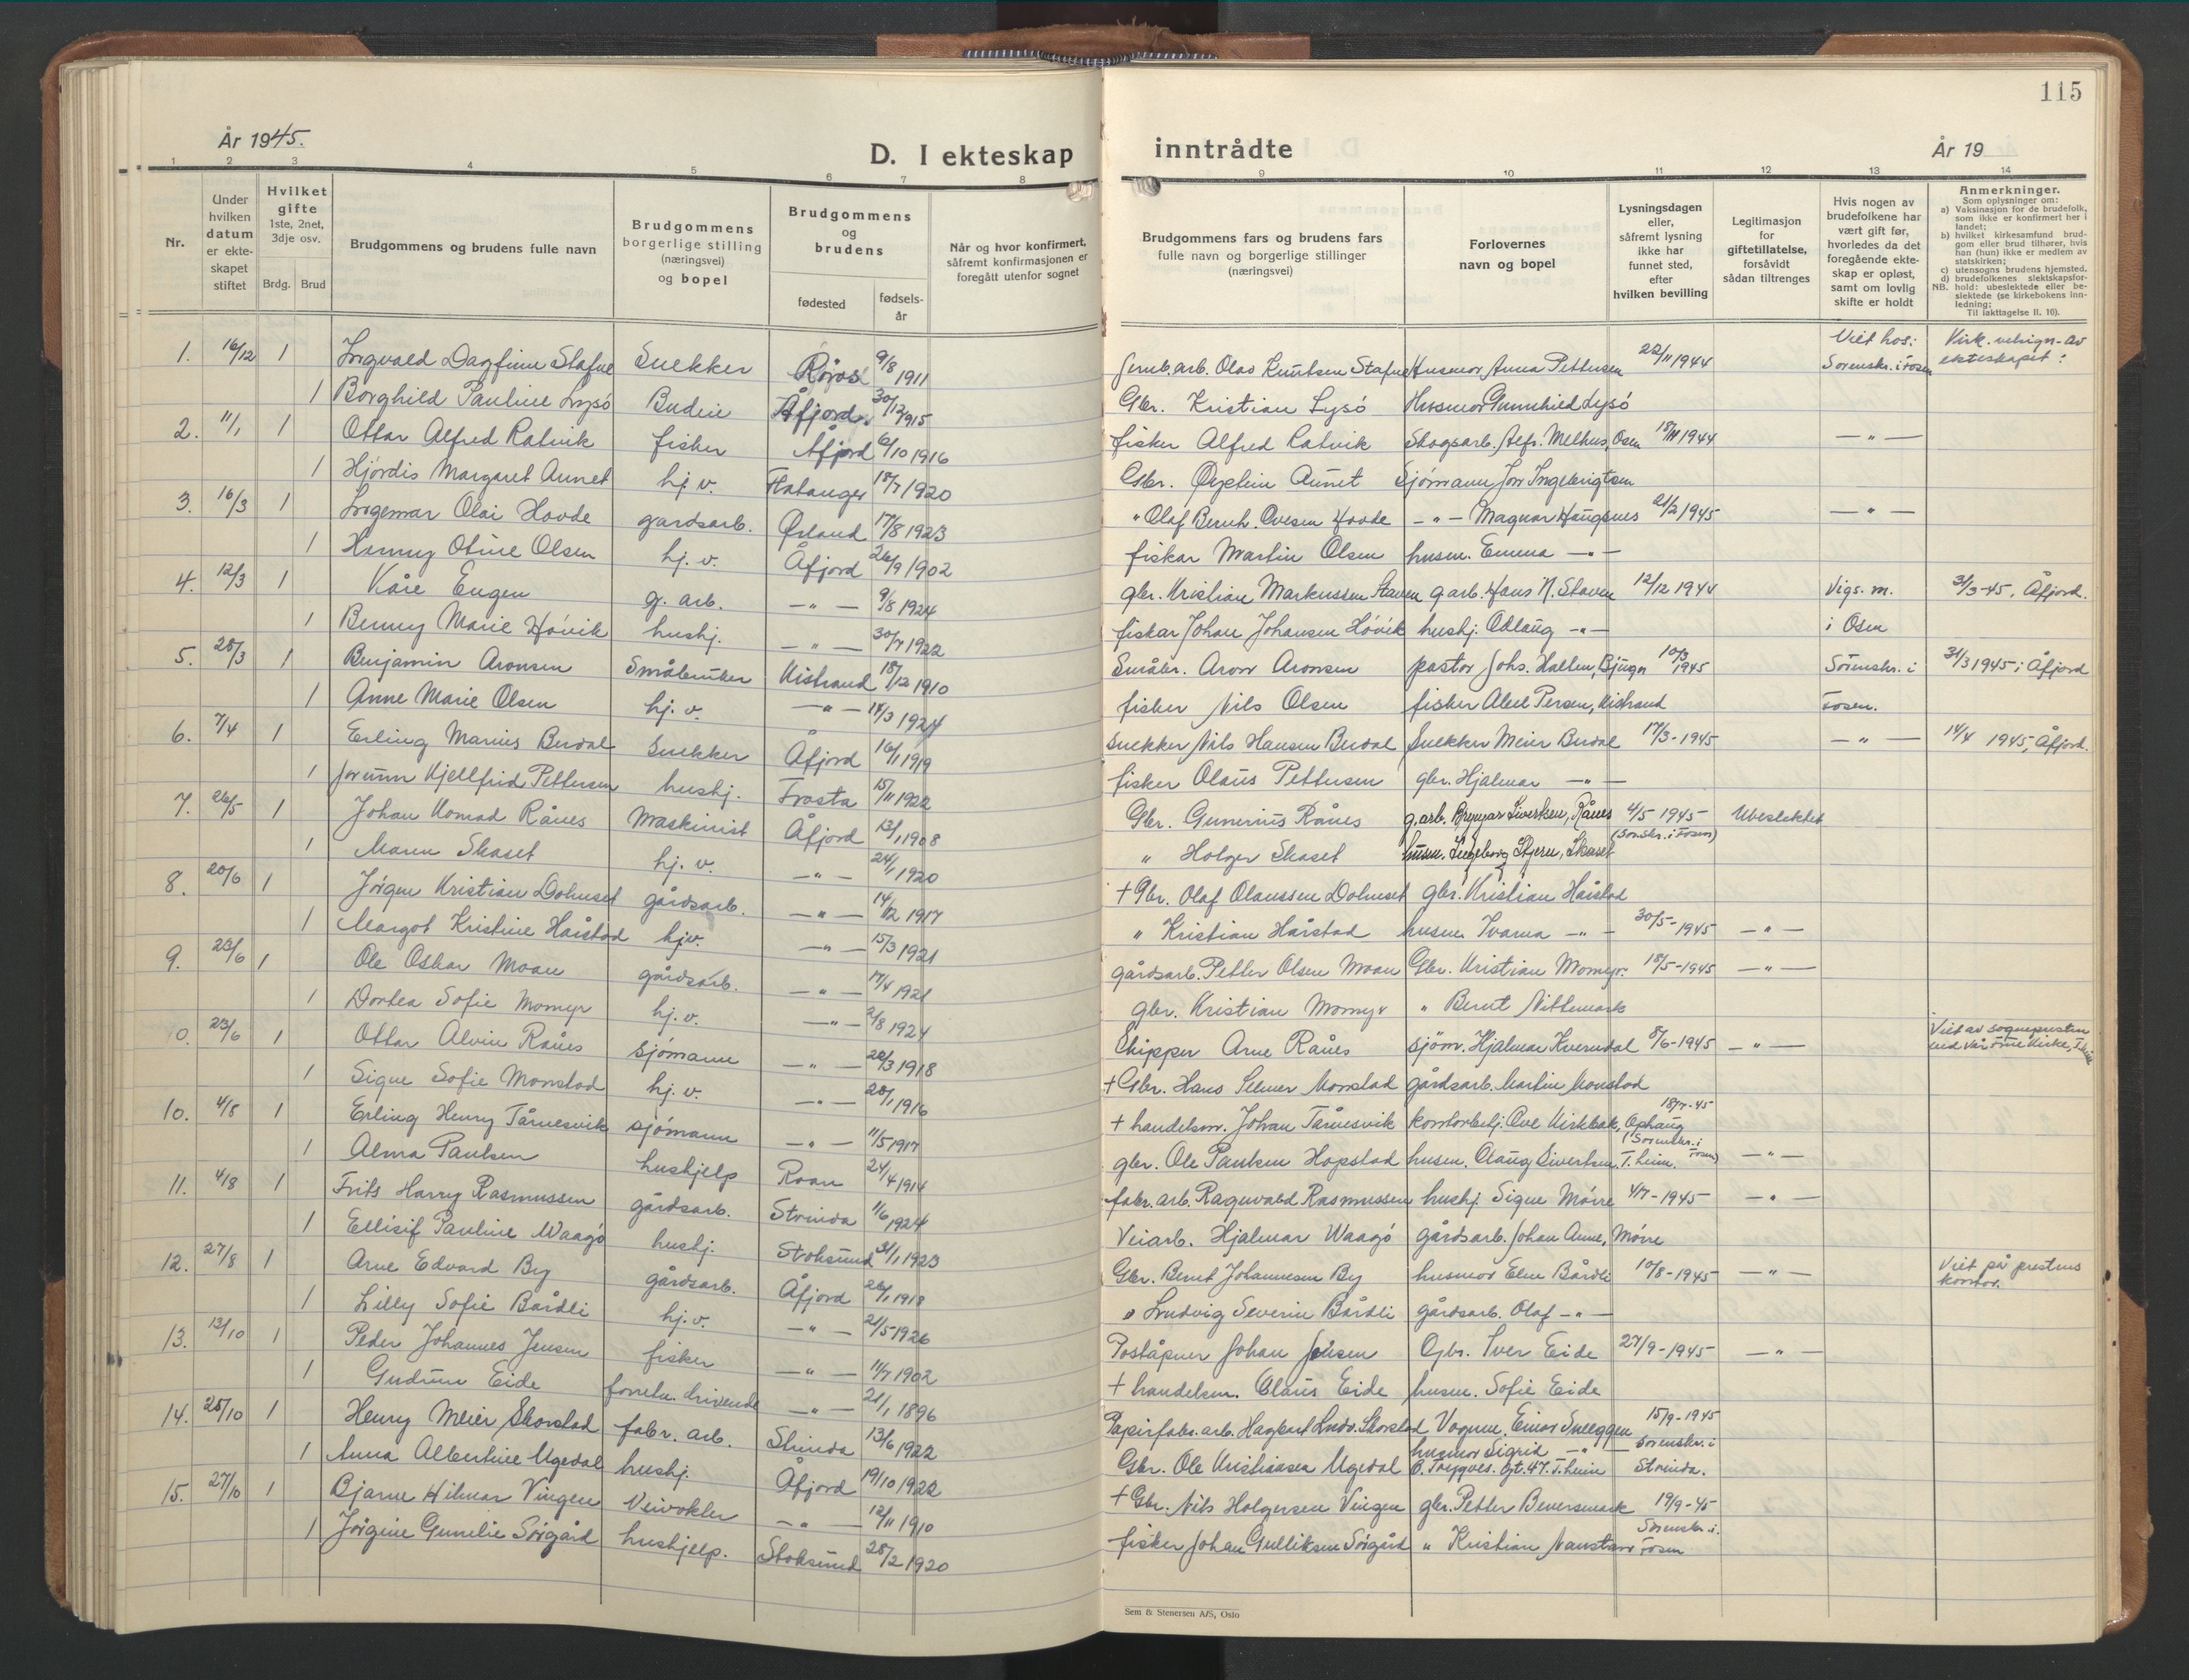 115
År 1945.
D. I ekteskap inntrådte
År 19
1 2 3 4 5 6 7 8 9 10 11 12 13 14
Nr.
Under hvilken datum er ekteskapet stiftet
Hvilket gifte 1ste, 2net, 3dje osv.
Brdg. Brud
Brudgommens og brudens fulle navn
Brudgommens borgerlige stilling (næringsvei) og bopel
Brudgommens og brudens
fødested
fødsels-år
Når og hvor konfirmert, såfremt konfirmasjonen er foregått utenfor sognet
Brudgommens fars og brudens fars fulle navn og borgerlige stillinger (næringsvei)
Forlovernes navn og bopel
Lysningsdagen eller, såfremt lysning ikke har funnet sted, efter hvilken bevilling
Legitimasjon for giftetillatelse, forsåvidt sådan tiltrenges
Hvis nogen av brudefolkene har vært gift før, hvorledes da det foregående ekteskap er opløst, samt om lovlig skifte er holdt
Anmerkninger.
Som oplysninger om:
a) Vaksinasjon for de brudefolk, som ikke er konfirmert her i landet;
b) hvilket kirkesamfund brudgom eller brud tilhører, hvis han (hun) ikke er medlem av statskirken;
c) utensogns brudens hjemsted.
d) brudefolkenes slektskapsforhold: ubeslektede eller beslektede (se kirkebokens innledning;
NB.
Til iakttagelse II. 10).
1. 16/12 1 Ingvald Dagfinn Stafne Snekker Röros 9/8 1911 Jernb.arb. Olav Knutsen Stafne Husmor Anna Pettersen 22/11 1944 Viet hos: Sorenskr. i Fosen Kirk. velsign. av ekteskapet:
1 Borghild Pauline Lysö Budeie Åfjord. 30/12 1915 Gbr. Kristian Lysö Husmor Gunnhild Lysö
2. 11/1 1 Ottar Alfred Ratvik fisker Åfjord 6/10 1916 fisker Alfred Ratvik Skogsarb. Alfr. Melhus, Osen 15/11 1944 — " —
1 Hjördis Margaret Aunet hj. v. Flatanger 18/7 1920 Gbr. Öystein Aunet Sjömann Jon Ingebrigtsen
3. 16/3 1 Ingemar Olai Hovde gardsarb. Ørland 17/8 1923 " Olaf Bernh. Ovesen Hovde — " — Magnar Haugsnes 21/2 1945 — " —
1 Hanny Otine Olsen hj. v. Åfjord 26/9 1902 fiskar Martin Olsen husm. Emma — " —
4. 12/3 1 Kåre Eugen g. arb. — " — 9/8 1924 gbr. Kristian Markussen Staven g.arb. Hans N. Staven 12/12 1944 Vigs. m. 31/3-45, Åfjord.
1 Benny Marie Hövik hushj. — " — 30/7 1922 fiskar Johan Johansen Hövik hushj. Odlaug — " — i Osen
5. 28/3 1 Benjamin Aronsen Småbruker Kistrand 18/12 1910 Småbr. Aron Aronsen pastor Johs. Hallen, Bjugn 10/3 1945 Sorenskr. i 31/3 1945 i Åfjord
1 Anne Marie Olsen hj. v. — " — 14/3 1924 fisker Nils Olsen fisker Aksel Persen, Kistrand Fosen.
6. 7/4 1 Erling Marius Berdal Snekker Åfjord 16/1 1919 Snekker Nils Hansen Berdal Snekker Meier Berdal 17/3-1945 — " — 14/4 1945, Åfjord.
1 Jorunn Kjellfrid Pettersen hushj. Frosta 15/11 1922 fisker Olaus Pettersen gbr. Hjalmar — " —
7. 26/5 1 Johan Konrad Rånes Maskinist Åfjord 13/1 1908 Gbr. Gunerius Rånes g.arb. Brynjar Sivertsen, Rånes 4/5-1945 (Sorskr. i Fosen) Ubeslektet
1 Maren Skaset hj. v. — " — 24/1 1920 " Holger Skaset husm. Ingeborg Stjern, Skaset
8. 20/6 1 Jörgen Kristian Dolmset gårdsarb. — " — 14/12 1917 + Gbr. Olaf Olaussen Dolmset gbr. Kristian Hårstad
1 Margot Kristine Hårstad hjv. — " — 15/3 1921 " Kristian Hårstad husm. Ivarna — " — 30/5-1945 — " —
9. 23/6 1 Ole Oskar Moan gårdsarb. — " — 17/4 1921 gårdsarb. Petter Olsen Moan Gbr. Kristian Momyr. 18/5-1945 — " —
1 Dortea Sofie Momyr hj. v. — " — 2/8 1924 gbr. Kristian Momyr " Bernt Nittemark
0. 23/6 1 Ottar Alvin Rånes sjömann — " — 22/3 1918 Skipper Arne Rånes sjöm. Hjalmar Kverndal 8/6-1945 — " — Viet av sognepresten ved Vår Frue Kirke, T.heim
1 Signe Sofie Monstad hj. v. — " — 28/1 1916 + Gbr. Hans Selmer Monstad gårdsarb. Martin Monstad
10. 4/8 1 Erling Henry Tårnesvik sjömann — " — 11/5 1917 + handelsm. Johan Tårnesvik kontorbetj. Ove Kirkbak, Ophaug 18/7-45 (Sorenskr. i Fosen)
1 Alma Paulsen hushjelp Roan 24/4 1914 gbr. Ole Paulsen Hopstad husm. Olaug Sivertsen, T.heim. — " —
11. 4/8 1 Frits Harry Rasmussen gårdsarb. Strinda 11/6 1924 fabr.arb. Ragnvald Rasmussen hushj. Signe Mörre 4/7-1945 — " —
1 Ellisif Pauline Waagö hushj. Stoksund 31/1 1923 Veiarb. Hjalmar Waagö gårdsarb. Johan Anne, Mörre
12. 27/8 1 Arne Edvard By gårdsarb. Åfjord 26/1 1918 Gbr. Bernt Johannesen By husmor Elen Bårdli 10/8-1945 — " — Viet på prestens kontor.
1 Lilly Sofie Bårdli hj. v. — " — 21/5 1926 " Ludvig Severin Bårdli gårdsarb. Olaf — " —
13. 13/10 1 Peder Johannes Jensen fisker — " — 11/7 1902 Poståpner Johan Jensen Gbr. Iver Eide 27/9-1945 — " —
1 Gudrun Eide forretn. drivende — " — 21/1 1896 + handelsm. Olaus Eide husm. Sofie Eide
14. 25/10 1 Henry Meier Skorstad fabr. arb. Strinda 13/6 1922 Papirfabr.arb. Hagbart Ludv. Skorstad Vognm. Einar Sneeggen 15/9-1945 Sorenskr. i Strinda.
1 Anna Albertine Ugedal hushj. Åfjord 19/10 1922 Gbr. Ole Kristiansen Ugedal husmor Sigrid — " — O. Trygves. Gt. 47. T.heim
15. 27/10 1 Bjarne Hilmar Vingen Veivokter — " — 12/11 1910 + Gbr. Nils Holgersen Vingen gbr. Petter Beversmark 19/9-45 Sorenskr. i Fosen
1 Jörgine Gunelie Sörgård hushjelp. Stoksund 28/2 1920 fisker Johan Gulliksen Sörgård " Kristian Nanstad
Sem & Stenersen A/S, Oslo